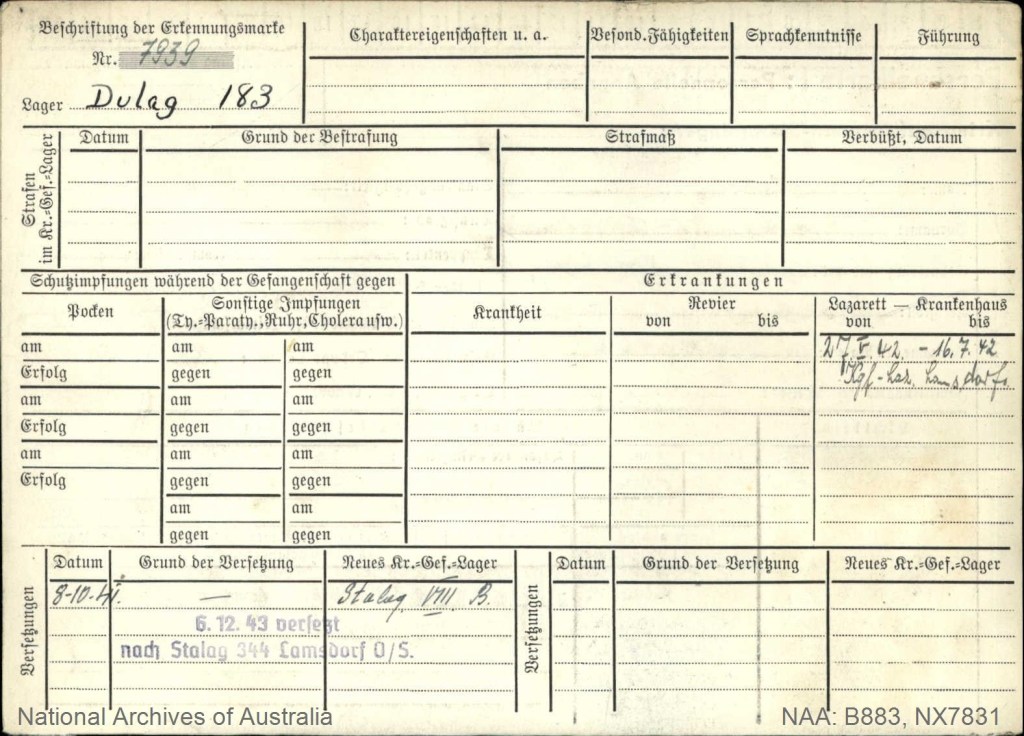 Beschriftung der Erkennungsmarke
Nr. 7939
Lager Dulag 183
Charaktereigenschaften u. a.
Besond. Fähigkeiten
Sprachkenntnisse
Führung
Strafen im Kr.-Gef.-Lager
Datum
Grund der Bestrafung
Strafmaß
Verbüßt, Datum
Schutzimpfungen während der Gefangenschaft gegen
Erkrankungen
Pocken
Sonstige Impfungen
(Ty.-Paraty., Ruhr, Cholera usw.)
Krankheit
Revier
von bis
Lazarett — Krankenhaus
von bis
am am am
27.V.42. - 16.7.42
Erfolg gegen gegen
Kgf.-Laz. Lamsdorf
am am am
Erfolg gegen gegen
am am am
Erfolg gegen gegen
am am
gegen gegen
Versetzungen
Datum Grund der Versetzung Neues Kr.-Gef.-Lager
8-10-41. — Stalag VIII B.
6. 12. 43 versetzt
nach Stalag 344 Lamsdorf O/S.
Versetzungen
Datum Grund der Versetzung Neues Kr.-Gef.-Lager
National Archives of Australia
NAA: B883, NX7831